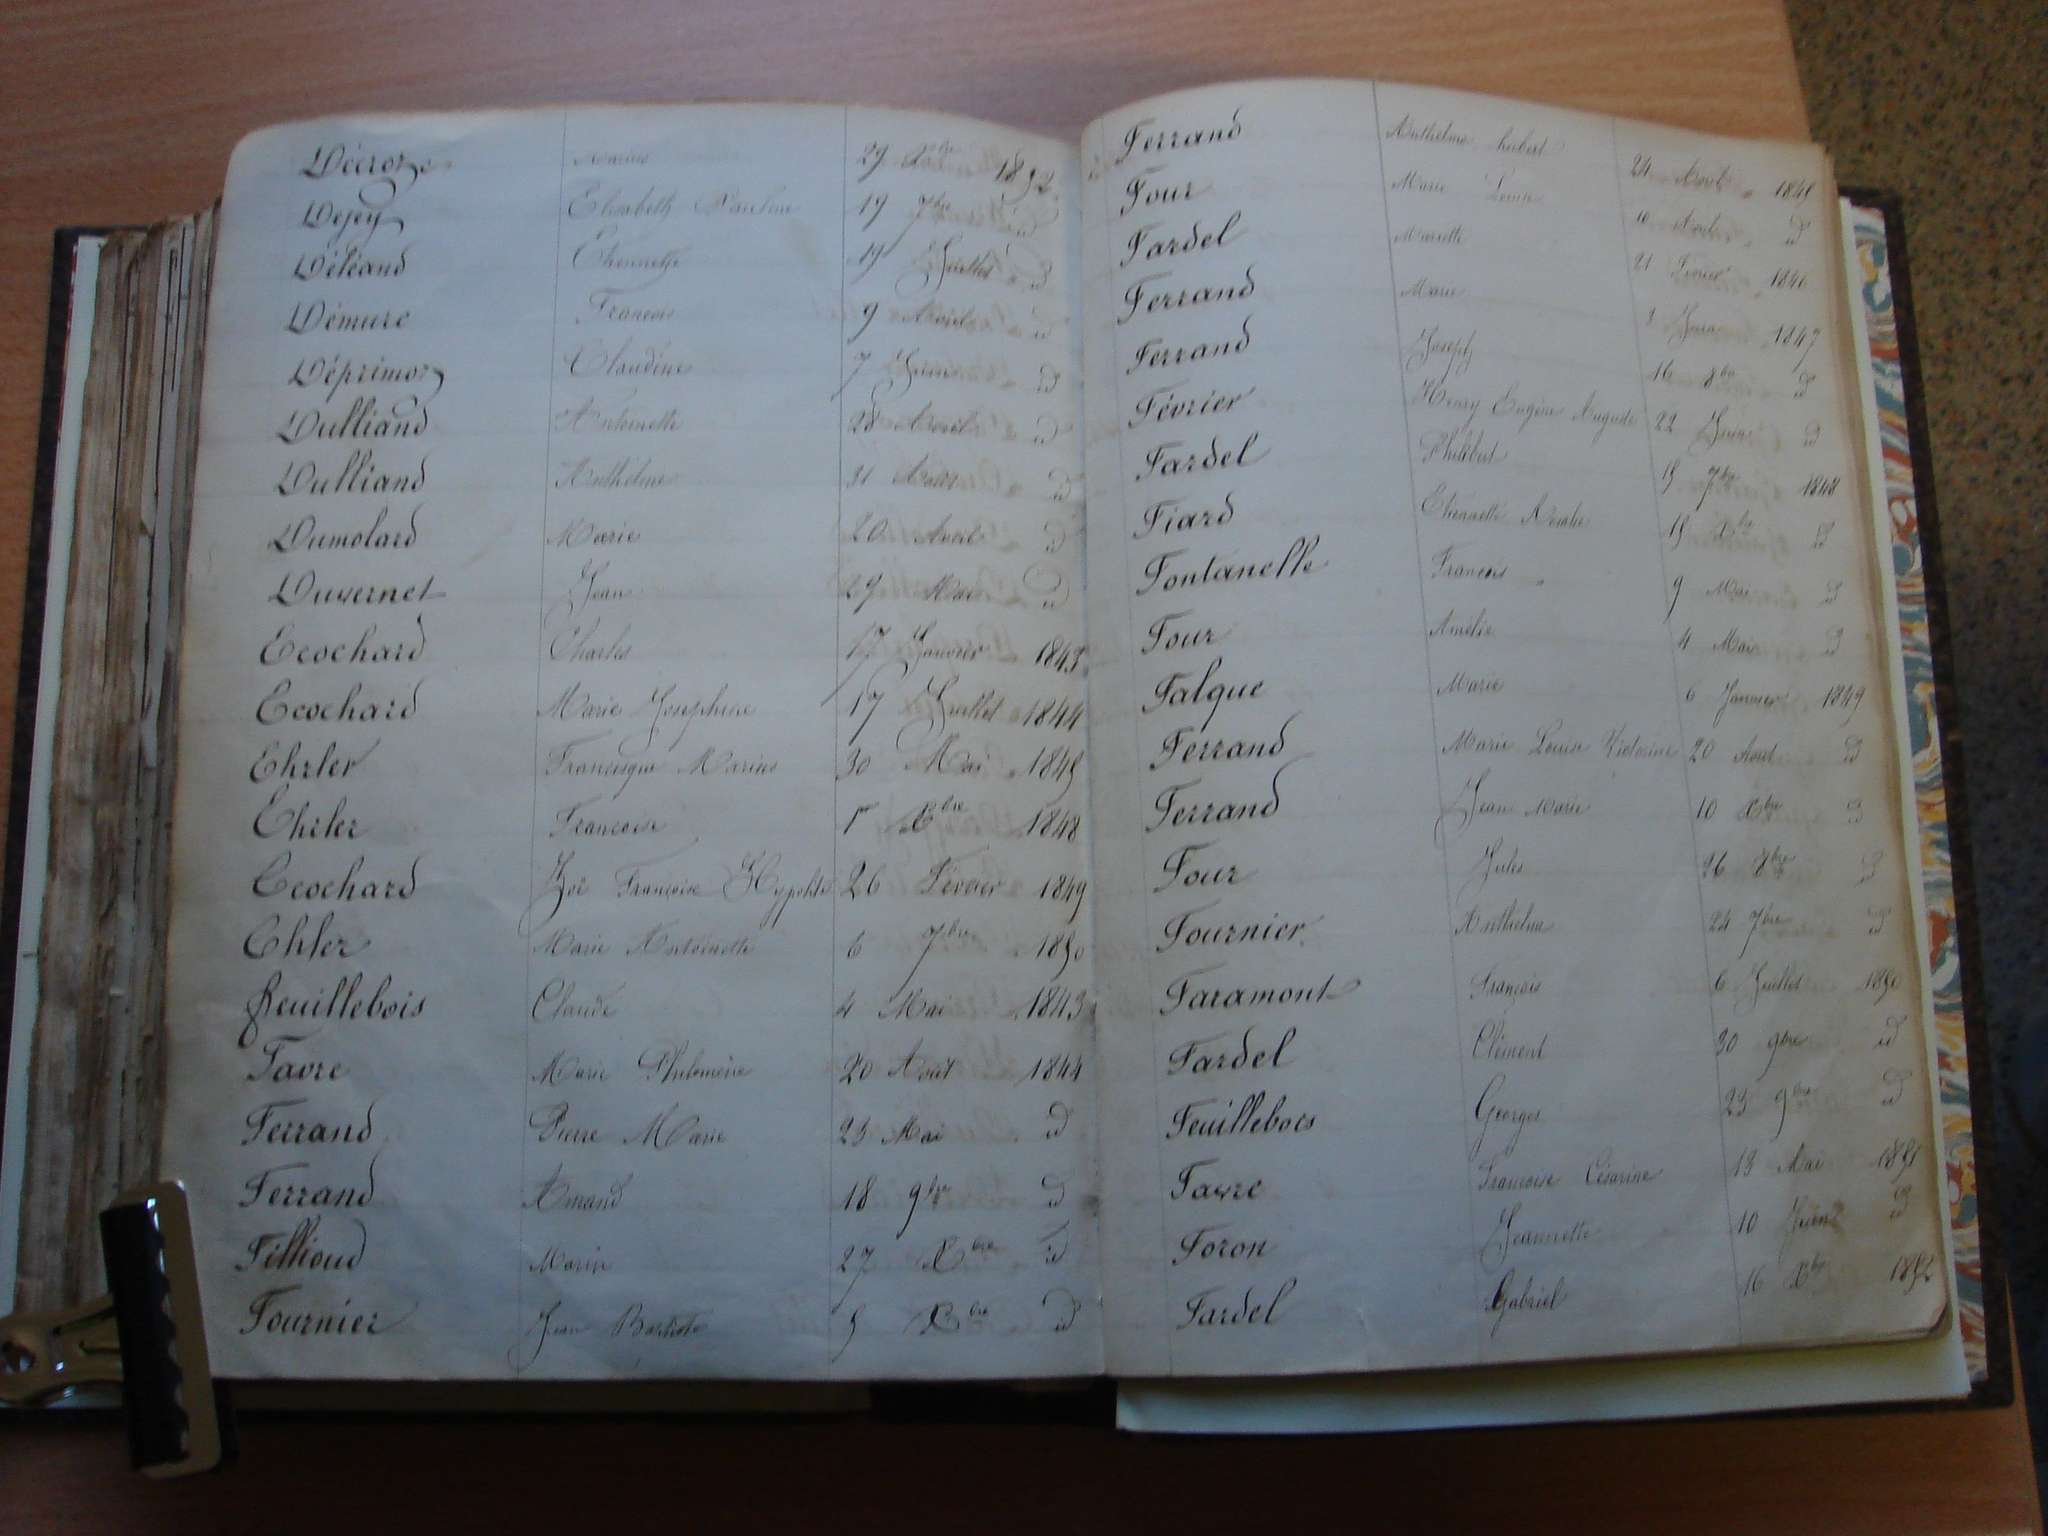 Décroze Marius 29 Xbre 1852
Dejey Elisabeth Pauline 19 7bre id
Déléand Etiennette 19 Juillet id
Démure François 9 Avril id
Déprimoz Claudine 7 Juin id
Dulliand Antoinette 28 Avril id
Dulliand Anthelme 31 id
Dumolard Marie 20 Avril id
Duvernet Jean 29 Mai id
Ecochard Charles 17 Janvier 1843
Ecochard Marie Joséphine 17 Juillet 1844
Ehrler Francisque Marius 30 Mai 1845
Ehrler Françoise 1r Xbre 1848
Ecochard Zoé Françoise Hypolite 26 Février 1849
Ehler Marie Antoinette 6 7bre 1850
Feuillebois Claude 4 Mai 1843
Favre Marie Philomène 20 Août 1844
Ferrand Pierre Marie 23 Mai id
Ferrand Amand 18 9bre id
Fillioud Marin 27 Xbre id
Fournier Jean 5 Xbre id
Ferrand Anthelme hubert 24 1845
Four Marie Louise 10 id
Fardel Mariette 21 Février 1846
Ferrand Marie 8 Juin 1847
Ferrand Joseph 16 8bre id
Février Henry Eugène Auguste 22 Juin id
Fardel Philibert 15 7bre 1848
Fiard Etiennette 15 Xbre id
Fontanelle François 9 Mai id
Four Amélie 4 Mai id
Falque Marie 6 Janvier 1849
Ferrand Marie Louise Victorine 20 Aout id
Ferrand Jean Marie 10 Xbre id
Four Jules 26 8bre id
Fournier Anthelme 24 7bre id
Faramont François 6 Juillet 1850
Fardel Clément 30 9bre id
Feuillebois Georges 23 9bre id
Favre Françoise Césarine 13 Mai 1851
Foron Jeannette 10 Juin id
Fardel Gabriel 16 Xbre 1852